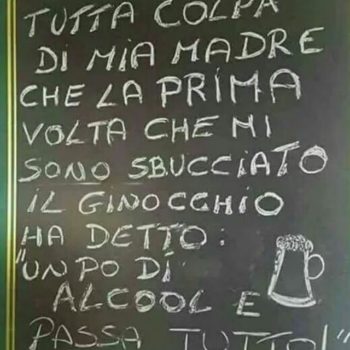 TUTTA COLPA
DI MIA MADRE
CHE LA PRIMA
VOLTA CHE MI
SONO SBUCCIATO
IL GINOCCHIO
HA DETTO:
"UN PO DI
ALCOOL E
PASSA TUTTO!"